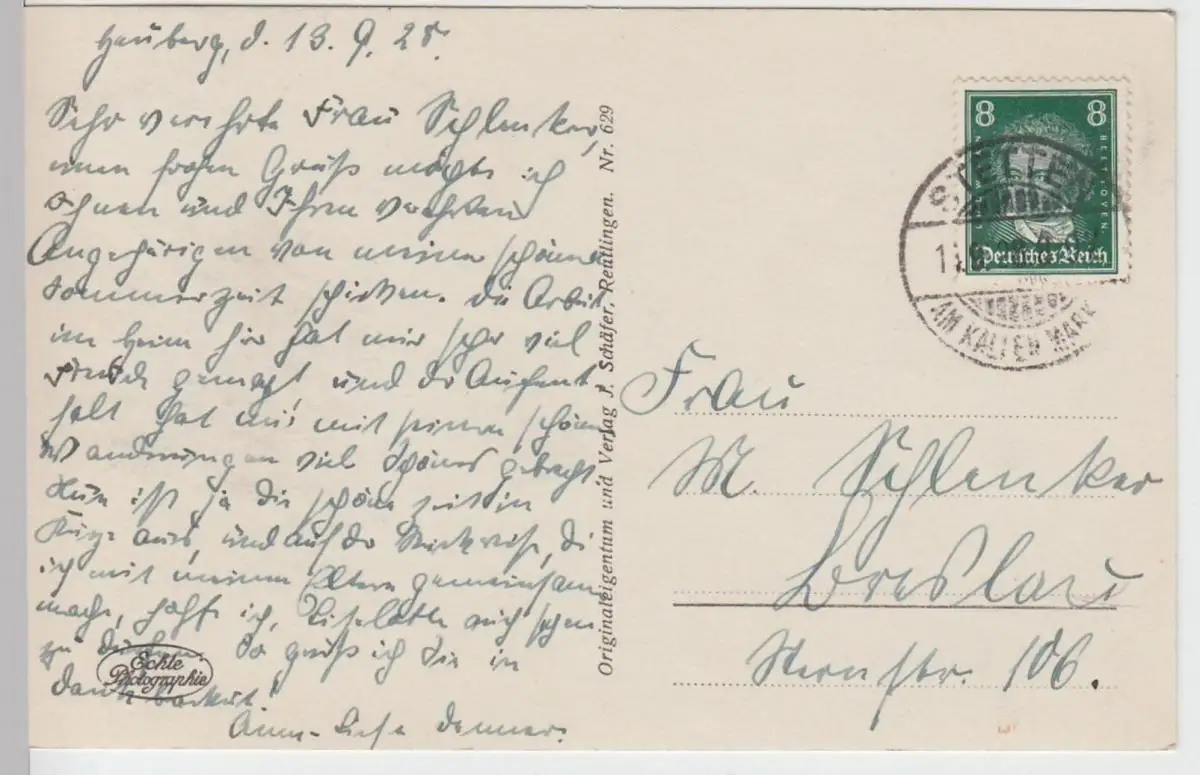 Heuberg, d. 13. 9. 28.
Sehr verehrte Frau Schlenker,
einen frohen Gruß möchte ich
Ihnen und Ihren verehrten
Angehörigen von meiner schönen
Sommerzeit schicken. Die Arbeit
im Heim hier hat mir sehr viel
Freude gemacht, und der Aufent
halt hat mir mit seinen schönen
Wanderungen viel Schönes gebracht.
Nun ist ja die schöne Zeit in
Kürze aus, und auf der Rückreise, die
ich mit meinen Eltern gemeinsam
mache, hoffe ich, Liselotte auch sehen
zu dürfen. So grüß ich Sie in
Dankbarkeit!
Anne-Liese
Echte
Photographie
Originaleigentum und Verlag J. Schäfer, Reutlingen. Nr. 629
8 8
BEETHOVEN
Deutsches Reich
STETTEN
AM KALTEN MARKT
Frau
M. Schlenker
Breslau
Sternstr. 106.